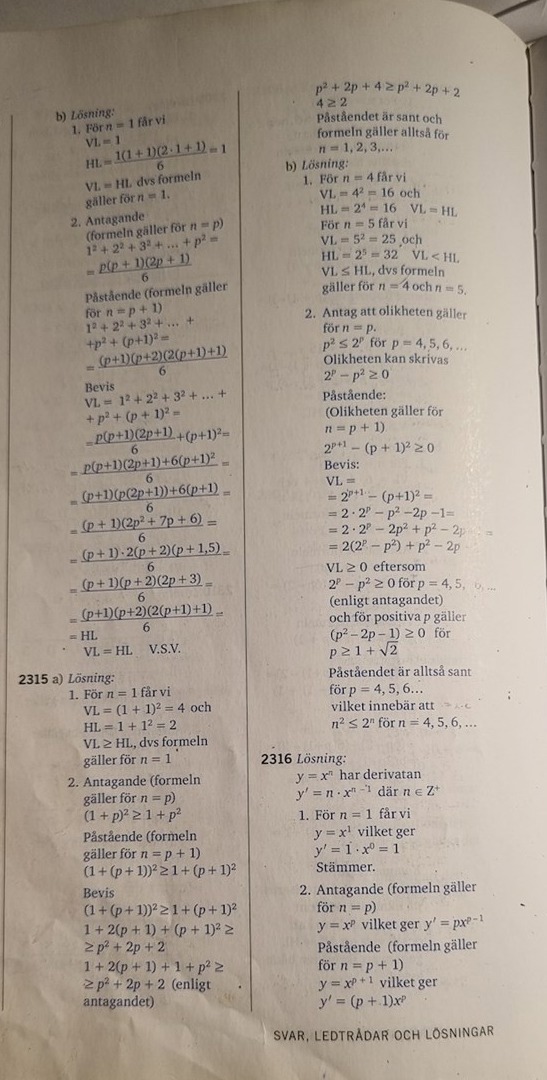 b) Lösning:
1. För n = 1 får vi
VL = 1
HL = 1(1 + 1)(2·1 + 1)/6 = 1
VL = HL dvs formeln
gäller för n = 1.
2. Antagande
(formeln gäller för n = p)
1² + 2² + 3² + ... + p² =
= p(p + 1)(2p + 1)/6
Påstående (formeln gäller
för n = p + 1)
1² + 2² + 3² + ... +
+p² + (p+1)² =
= (p+1)(p+2)(2(p+1)+1)/6
Bevis
VL = 1² + 2² + 3² + ... +
+ p² + (p + 1)² =
= p(p+1)(2p+1)/6 + (p+1)² =
= p(p+1)(2p+1)+6(p+1)²/6 =
= (p+1)(p(2p+1))+6(p+1)/6 =
= (p + 1)(2p² + 7p + 6)/6 =
= (p + 1)·2(p + 2)(p + 1,5)/6 =
= (p + 1)(p + 2)(2p + 3)/6 =
= (p+1)(p+2)(2(p+1)+1)/6 =
= HL
VL = HL V.S.V.
2315 a) Lösning:
1. För n = 1 får vi
VL = (1 + 1)² = 4 och
HL = 1 + 1² = 2
VL ≥ HL, dvs formeln
gäller för n = 1
2. Antagande (formeln
gäller för n = p)
(1 + p)² ≥ 1 + p²
Påstående (formeln
gäller för n = p + 1)
(1 + (p + 1))² ≥ 1 + (p + 1)²
Bevis
(1 + (p + 1))² ≥ 1 + (p + 1)²
1 + 2(p + 1) + (p + 1)² ≥
≥ p² + 2p + 2
1 + 2(p + 1) + 1 + p² ≥
≥ p² + 2p + 2 (enligt
antagandet)
p² + 2p + 4 ≥ p² + 2p + 2
4 ≥ 2
Påståendet är sant och
formeln gäller alltså för
n = 1, 2, 3,...
b) Lösning:
1. För n = 4 får vi
VL = 4² = 16 och
HL = 2⁴ = 16 VL = HL
För n = 5 får vi
VL = 5² = 25 och
HL = 2⁵ = 32 VL < HL
VL ≤ HL, dvs formeln
gäller för n = 4 och n = 5.
2. Antag att olikheten gäller
för n = p.
p² ≤ 2ᵖ för p = 4, 5, 6, ...
Olikheten kan skrivas
2ᵖ − p² ≥ 0
Påstående:
(Olikheten gäller för
n = p + 1)
2ᵖ⁺¹ − (p + 1)² ≥ 0
Bevis:
VL =
= 2ᵖ⁺¹ − (p+1)² =
= 2 · 2ᵖ − p² −2p −1=
= 2 · 2ᵖ − 2p² + p² − 2p
= 2(2ᵖ − p²) + p² − 2p
VL ≥ 0 eftersom
2ᵖ − p² ≥ 0 för p = 4, 5, 6, ...
(enligt antagandet)
och för positiva p gäller
(p² − 2p − 1) ≥ 0 för
p ≥ 1 + √2
Påståendet är alltså sant
för p = 4, 5, 6...
vilket innebär att
n² ≤ 2ⁿ för n = 4, 5, 6, ...
2316 Lösning:
y = xⁿ har derivatan
y′ = n · xⁿ⁻¹ där n ∈ Z⁺
1. För n = 1 får vi
y = x¹ vilket ger
y′ = 1 · x⁰ = 1
Stämmer.
2. Antagande (formeln gäller
för n = p)
y = xᵖ vilket ger y′ = pxᵖ⁻¹
Påstående (formeln gäller
för n = p + 1)
y = xᵖ⁺¹ vilket ger
y′ = (p + 1)xᵖ
SVAR, LEDTRÅDAR OCH LÖSNINGAR